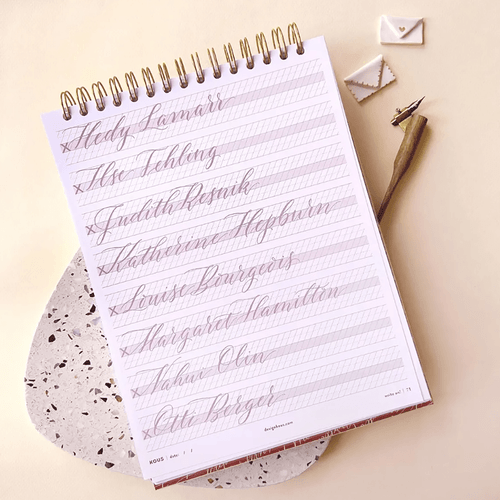 x Hedy Lamarr
x Ilse Fehling
x Judith Resnik
x Katherine Hepburn
x Louise Bourgeois
x Margaret Hamilton
x Nahui Olin
x Otti Berger
designkous.com
KOUS | date: / /